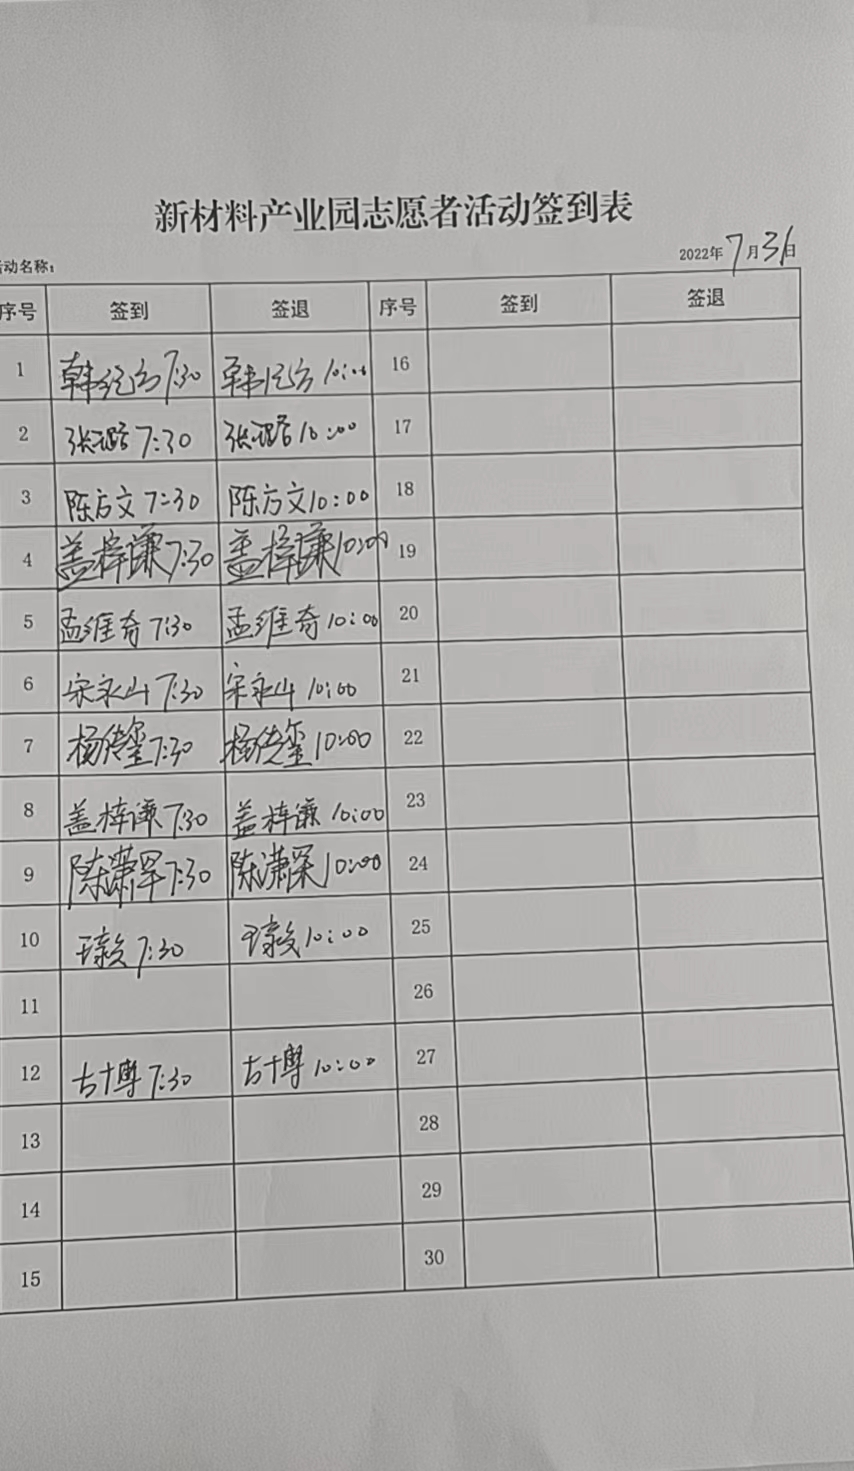 新材料产业园志愿者活动签到表
动名称：
2022年7月31日
序号 签到 签退 序号 签到 签退
1 韩 7:30 韩 10:00 16
2 张 7:30 张 10:00 17
3 陈方文 7:30 陈方文 10:00 18
4 盖梓谦 7:30 盖梓谦 10:00 19
5 孟维奇 7:30 孟维奇 10:00 20
6 宋永山 7:30 宋永山 10:00 21
7 杨传玺 7:30 杨传玺 10:00 22
8 盖梓谦 7:30 盖梓谦 10:00 23
9 陈潇罕 7:30 陈潇 10:00 24
10 7:30 10:00 25
11 26
12 古十博 7:30 古十博 10:00 27
13 28
14 29
15 30